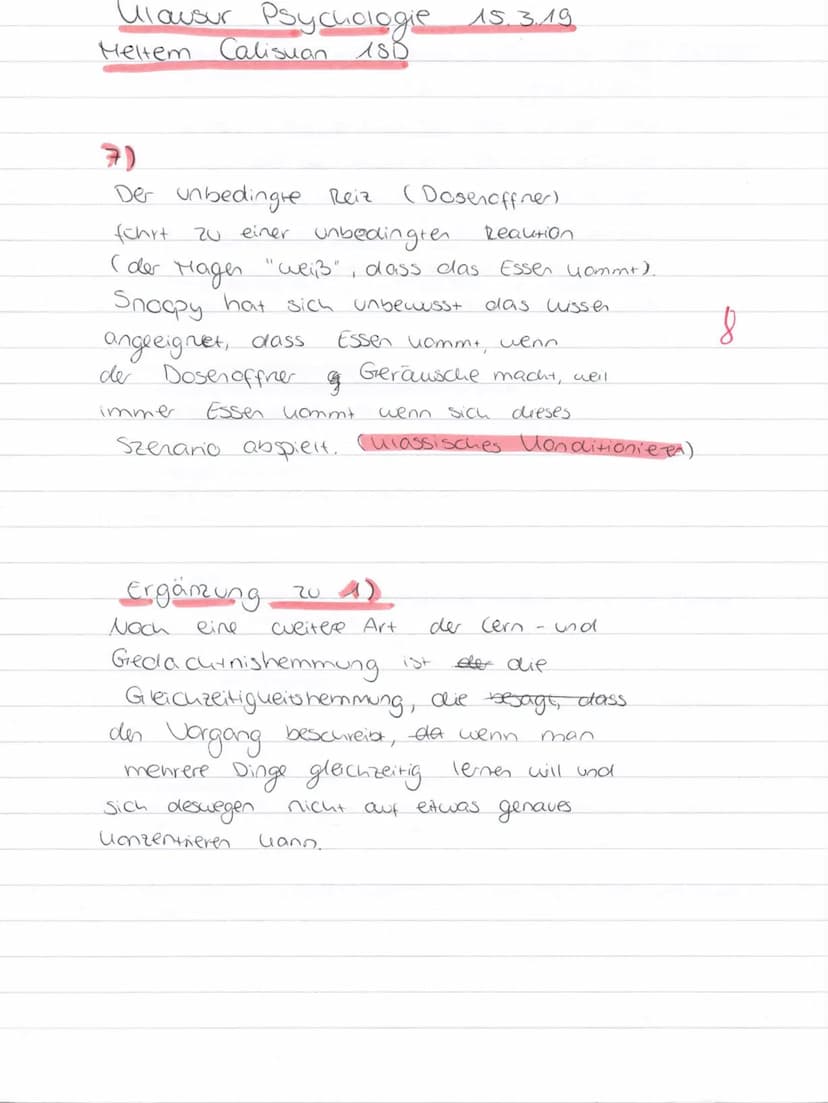 Klausur Psychologie 15.3.19
Meltem Caliskan 1SD
7)
Der unbedingte Reiz (Dosenöffner)
führt zu einer unbedingten Reaktion
(der Magen "weiß", dass das Essen kommt).
Snoopy hat sich unbewusst das Wissen
angeeignet, dass Essen kommt, wenn
der Dosenöffner g Geräusche macht, weil
immer Essen kommt wenn sich dieses
Szenario abspielt. (Klassisches Konditionieren)
8
Ergänzung zu 1)
Noch eine weitere Art der Lern- und
Gedächtnishemmung ist der die
Gleichzeitigkeitshemmung, die besagt, dass
den Vorgang beschreibt, da wenn man
mehrere Dinge gleichzeitig lernen will und
sich deswegen nicht auf etwas genaues
konzentrieren kann.